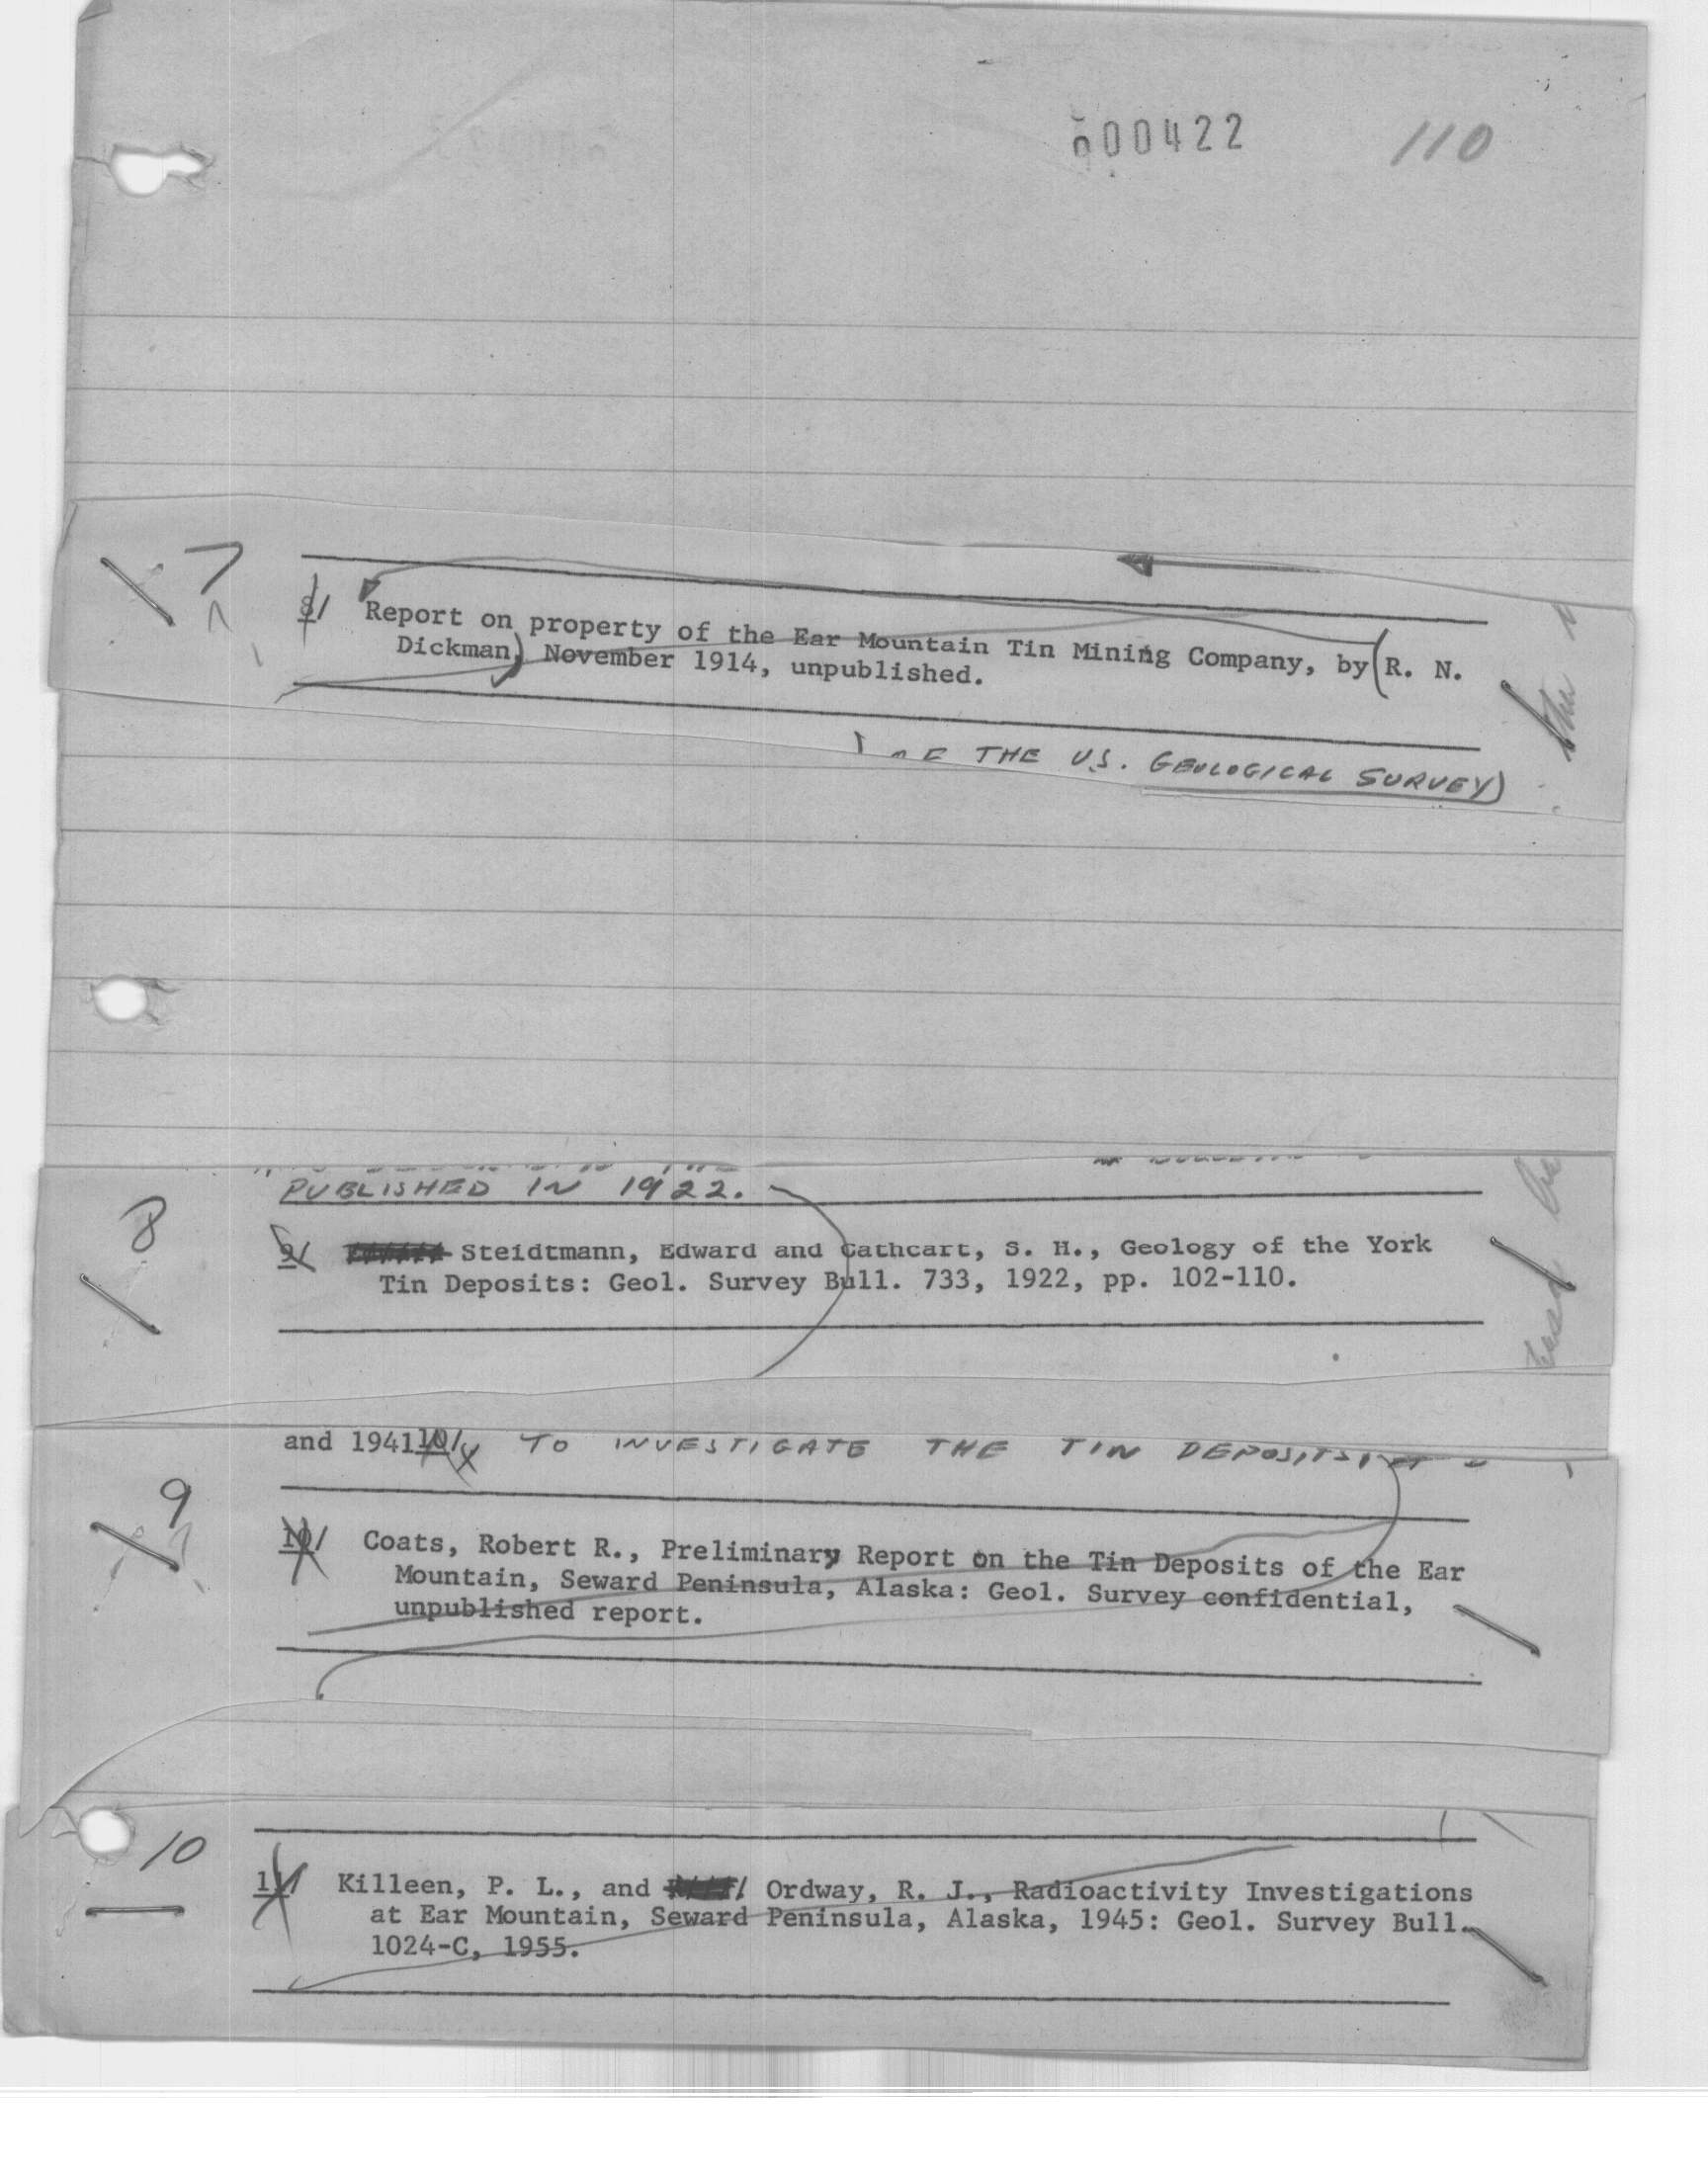 000422 110
7
8/ Report on property of the Ear Mountain Tin Mining Company, by (R. N.
Dickman) November 1914, unpublished.
THE U.S. GEOLOGICAL SURVEY)
PUBLISHED IN 1922.
8
9/ Steidtmann, Edward and Cathcart, S. H., Geology of the York
Tin Deposits: Geol. Survey Bull. 733, 1922, pp. 102-110.
and 1941 10/ TO INVESTIGATE THE TIN DEPOSITS
9
10/ Coats, Robert R., Preliminary Report on the Tin Deposits of the Ear
Mountain, Seward Peninsula, Alaska: Geol. Survey confidential,
unpublished report.
10
11/ Killeen, P. L., and Ordway, R. J., Radioactivity Investigations
at Ear Mountain, Seward Peninsula, Alaska, 1945: Geol. Survey Bull.
1024-C, 1955.